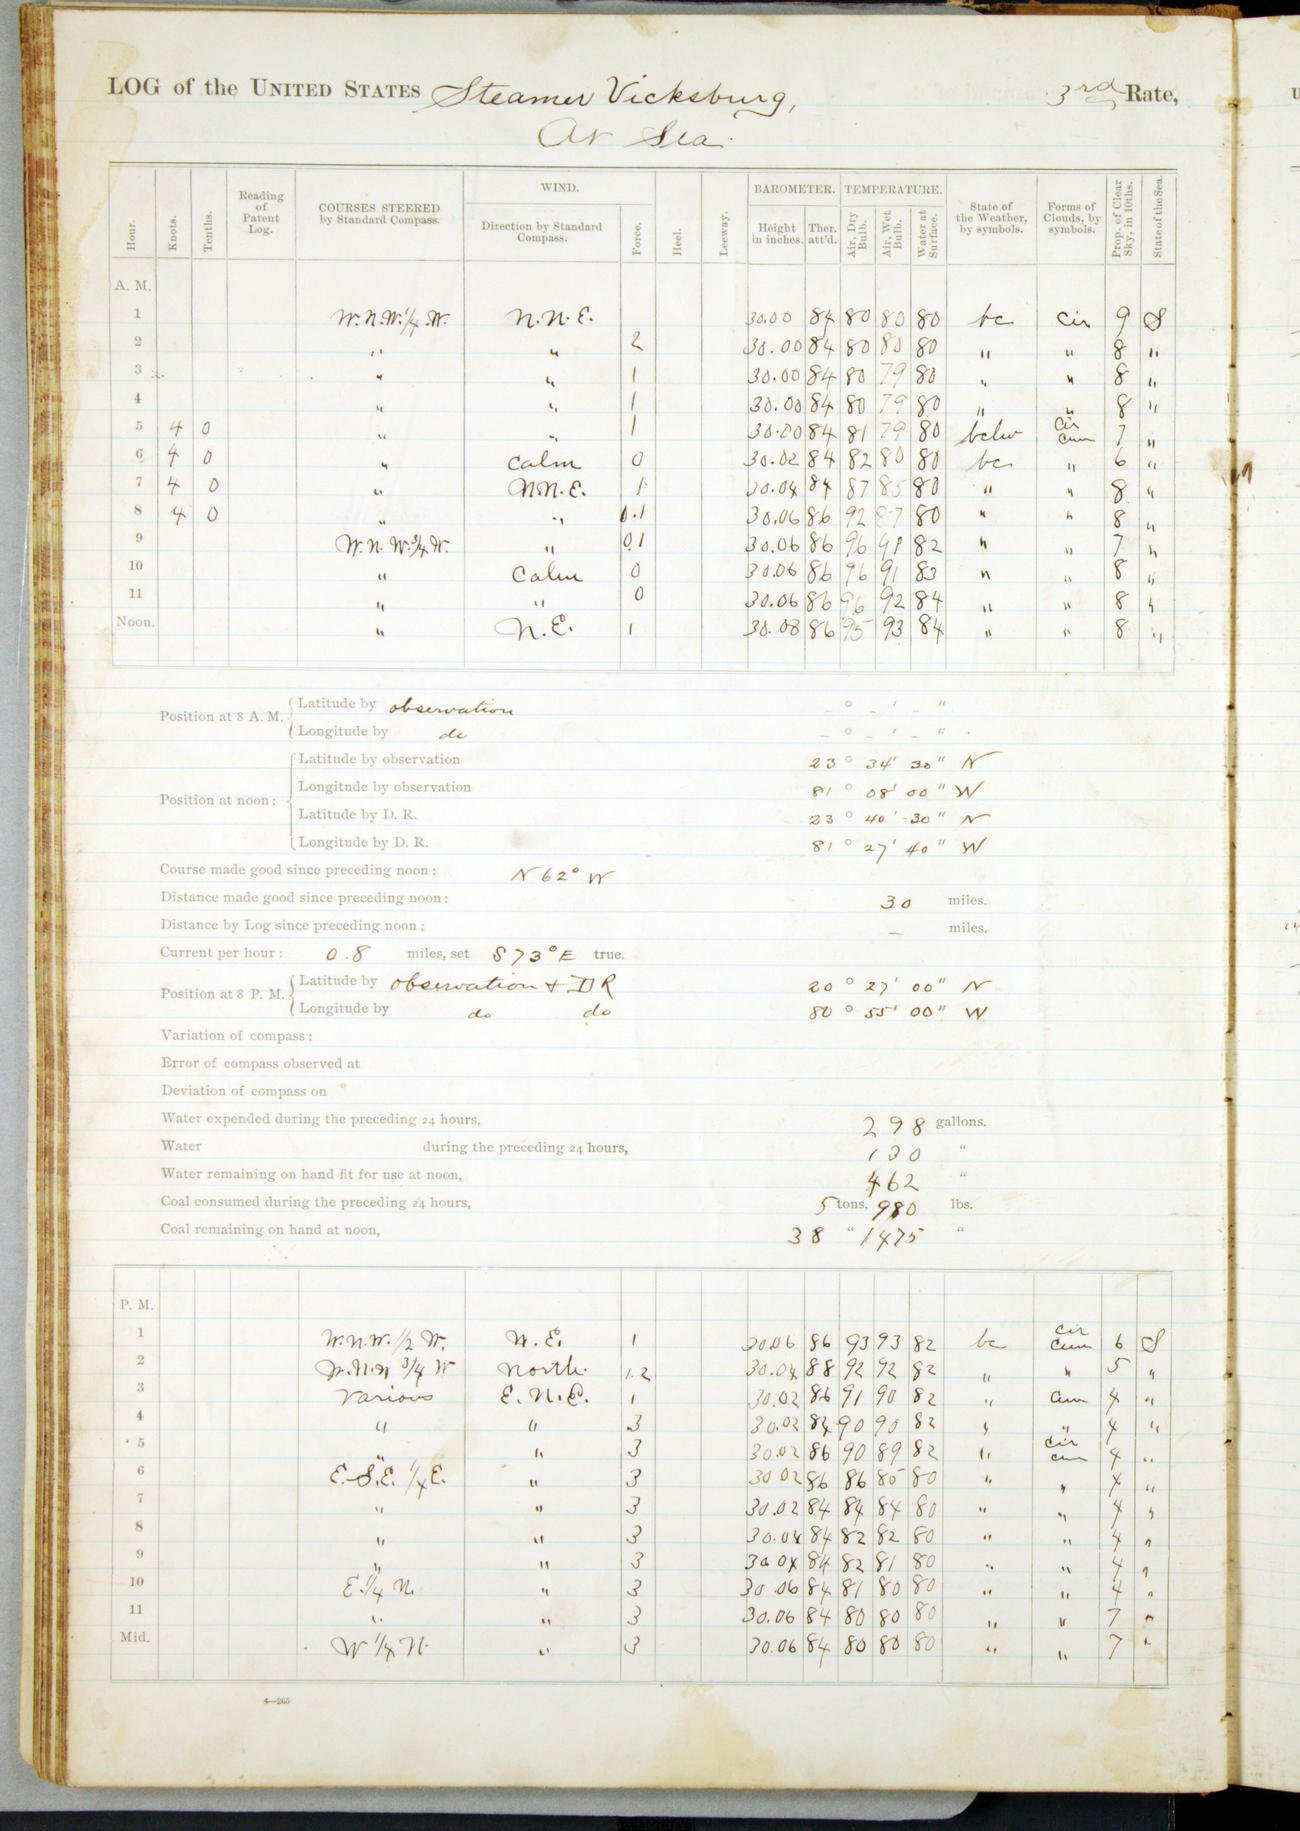 LOG of the UNITED STATES Steamer Vicksburg, 3rd Rate,
At Sea.
Hour. Knots. Tenths. Reading of Patent Log. COURSES STEERED by Standard Compass. WIND. Direction by Standard Compass. Force. Heel. Leeway. BAROMETER. Height in inches. Ther. att'd. TEMPERATURE. Air, Dry Bulb. Air, Wet Bulb. Water at Surface. State of the Weather, by symbols. Forms of Clouds, by symbols. Prop. of Clear Sky, in 10ths. State of the Sea.
A. M.
1 W.N.W. 1/4 W. N.N.E. 30.00 84 80 80 80 bc cir 9 S
2 " " 2 30.00 84 80 80 80 " " 8 "
3 " " 1 30.00 84 80 79 80 " " 8 "
4 " " 1 30.00 84 80 79 80 " " 8 "
5 4 0 " " 1 30.00 84 81 79 80 cir cum 7 "
6 4 0 " Calm 0 30.02 84 82 80 80 bc " 6 "
7 4 0 " NN.E. 1 30.04 84 87 85 80 " " 8 "
8 4 0 " " 0.1 30.06 86 92 87 80 " " 8 "
9 W.N.W. 3/4 W. " 0.1 30.06 86 96 91 82 " " 7 "
10 " Calm 0 30.06 86 96 91 83 " " 8 "
11 " " 0 30.06 86 96 92 84 " " 8 "
Noon. " N.E. 1 30.08 86 95 93 84 " " 8 "
Position at 8 A. M. Latitude by observation – ° – ' – "
Longitude by do – ° – ' – "
Position at noon: Latitude by observation 23 ° 34' 30" N
Longitude by observation 81 ° 08' 00" W
Latitude by D. R. 23 ° 40' 30" N
Longitude by D. R. 81 ° 27' 40" W
Course made good since preceding noon: N 62° W
Distance made good since preceding noon: 30 miles.
Distance by Log since preceding noon: – miles.
Current per hour: 0.8 miles, set S 73° E true.
Position at 8 P. M. Latitude by observation + DR 20 ° 27' 00" N
Longitude by do do 80 ° 55' 00" W
Variation of compass:
Error of compass observed at
Deviation of compass on
Water expended during the preceding 24 hours, 298 gallons.
Water during the preceding 24 hours, 130 "
Water remaining on hand fit for use at noon, 462 "
Coal consumed during the preceding 24 hours, 5 tons, 980 lbs.
Coal remaining on hand at noon, 38 " 1475 "
P. M.
1 W.N.W. 1/2 W. N.E. 1 30.06 86 93 93 82 bc cir cum 6 S
2 3/4 W North. 1.2 30.04 88 92 92 82 " " 5 "
3 Various E.N.E. 1 30.02 86 91 90 82 " cum 4 "
4 " " 3 30.02 84 90 90 82 " " 4 "
5 " " 3 30.02 86 90 89 82 " cir cum 4 "
6 E.S.E. 1/4 E. " 3 30 02 86 86 85 80 " " 4 "
7 " " 3 30.02 84 84 84 80 " " 4 "
8 " " 3 30.04 84 82 82 80 " " 4 "
9 " " 3 30 04 84 82 81 80 " " 4 "
10 E 1/4 N. " 3 30 06 84 81 80 80 " " 4 "
11 " " 3 30.06 84 80 80 80 " " 7 "
Mid. W 1/4 N. " 3 30.06 84 80 80 80 " " 7 "
4—265